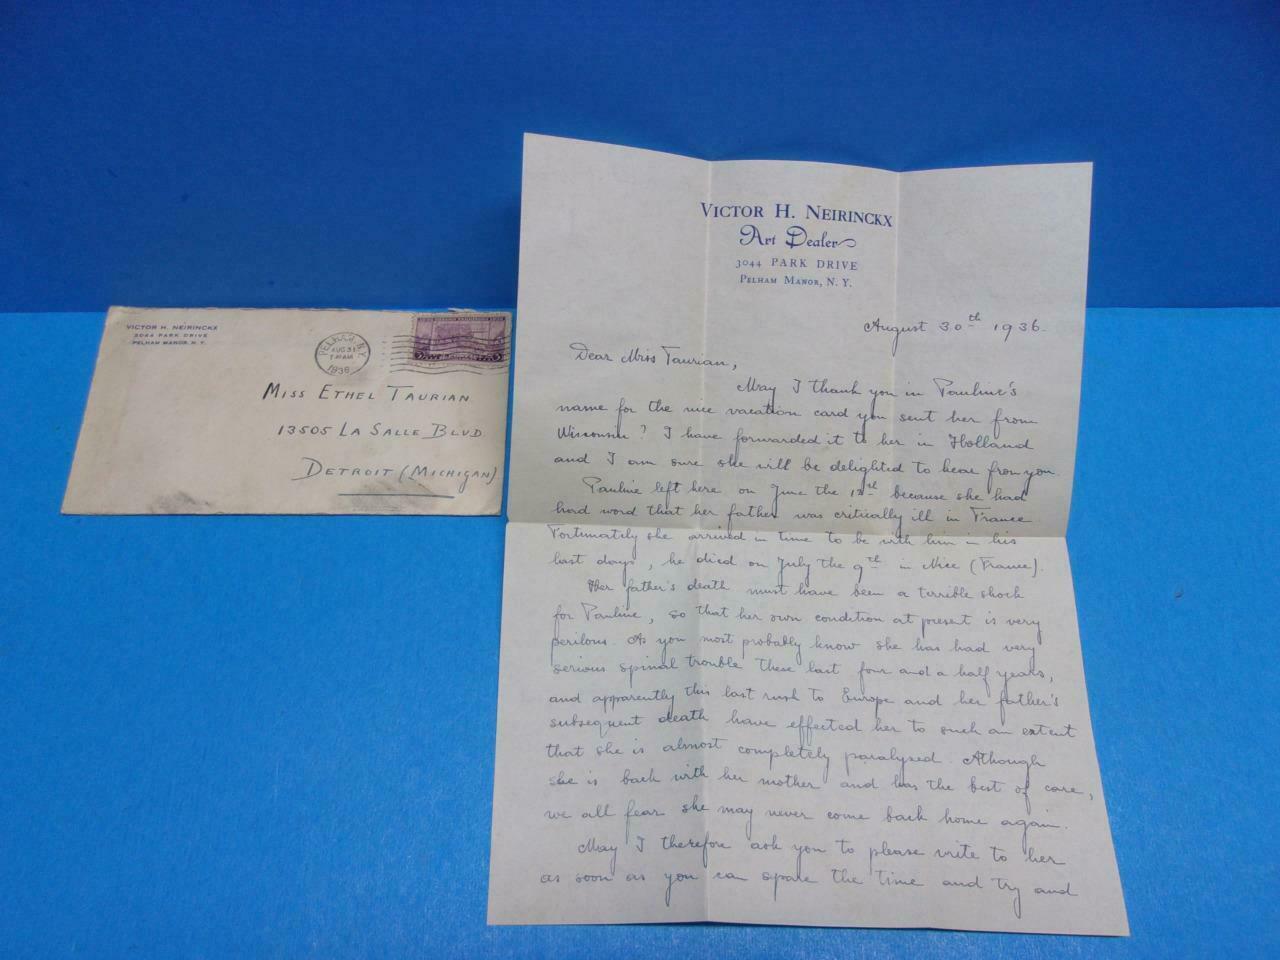 VICTOR H. NEIRINCKX
3044 PARK DRIVE
PELHAM MANOR, N. Y.
PELHAM, N.Y.
AUG 31
1936
MISS ETHEL TAURIAN
13505 LA SALLE BLVD.
DETROIT (MICHIGAN)
VICTOR H. NEIRINCKX
Art Dealer
3044 PARK DRIVE
PELHAM MANOR, N. Y.
August 30th 1936.
Dear Miss Taurian,
May I thank you in Pauline's
name for the nice vacation card you sent her from
Wisconsin? I have forwarded it to her in Holland
and I am sure she will be delighted to hear from you.
Pauline left here on June the because she had
had word that her father was critically ill in France
Fortunately she arrived in time to be with him in his
last days, he died on July the 9th in Nice (France).
Her father's death must have been a terrible shock
for Pauline, so that her own condition at present is very
perilous. As you most probably know she has had very
serious spinal trouble these last four and a half years,
and apparently this last rush to Europe and her father's
subsequent death have effected her to such an extent
that she is almost completely paralysed. Although
she is back with her mother and has the best of care,
we all fear she may never come back home again.
May I therefore ask you to please write to her
as soon as you can spare the time and try and